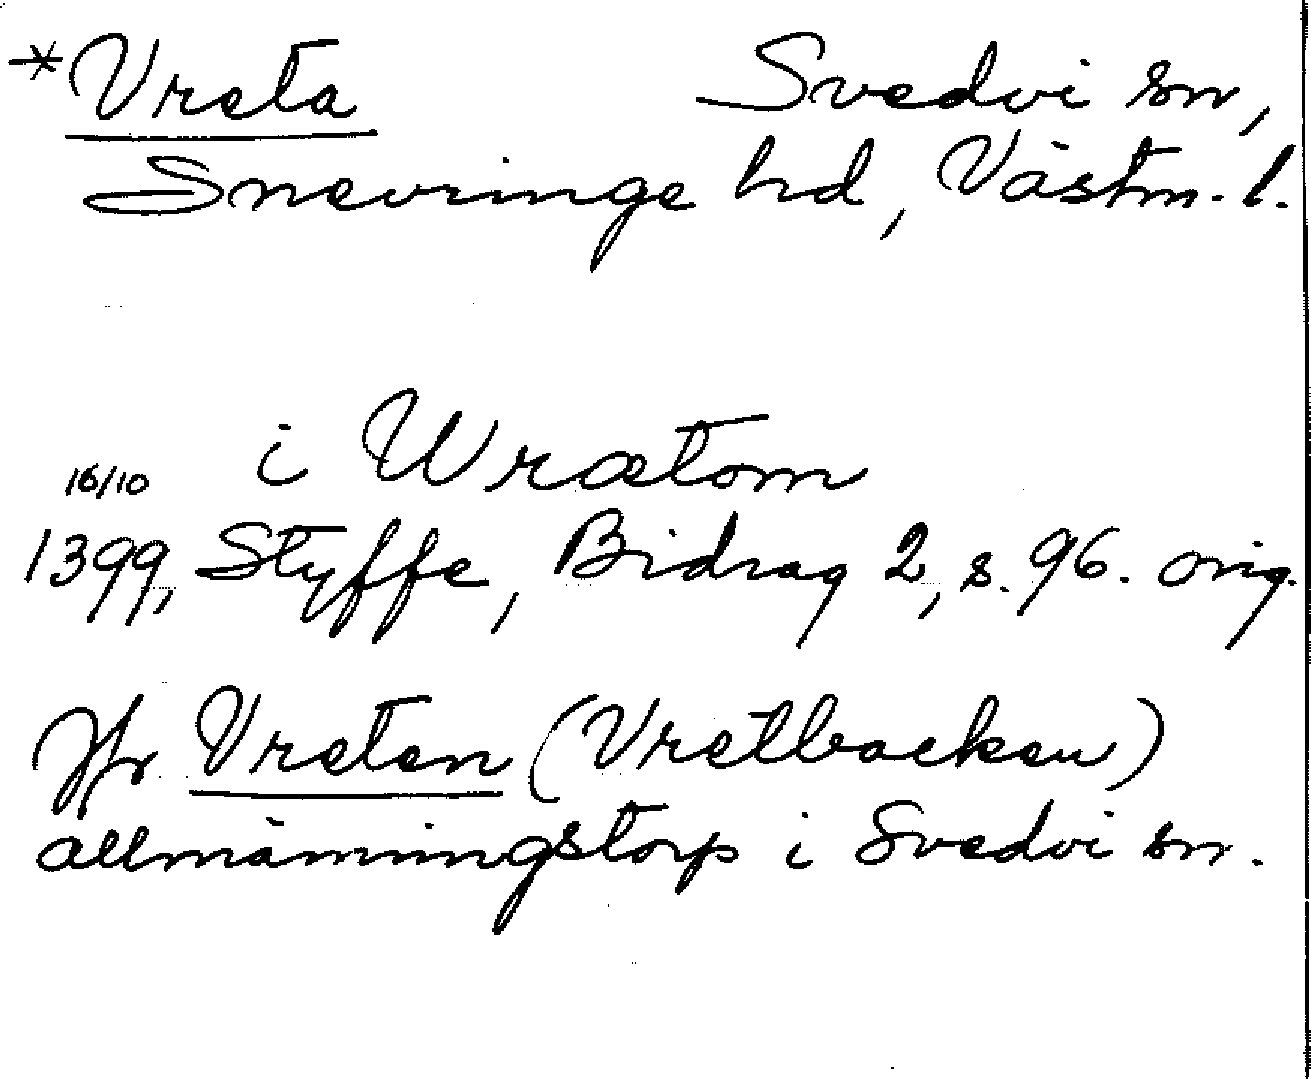 *Vreta Svedvi sn,
Snevringe hd, Västm. l.
i Wrætom
16/10
1399, Styffe, Bidrag 2, s. 96. orig.
Jfr Vreten (Vretbacken)
allmänningstorp i Svedvi sn.